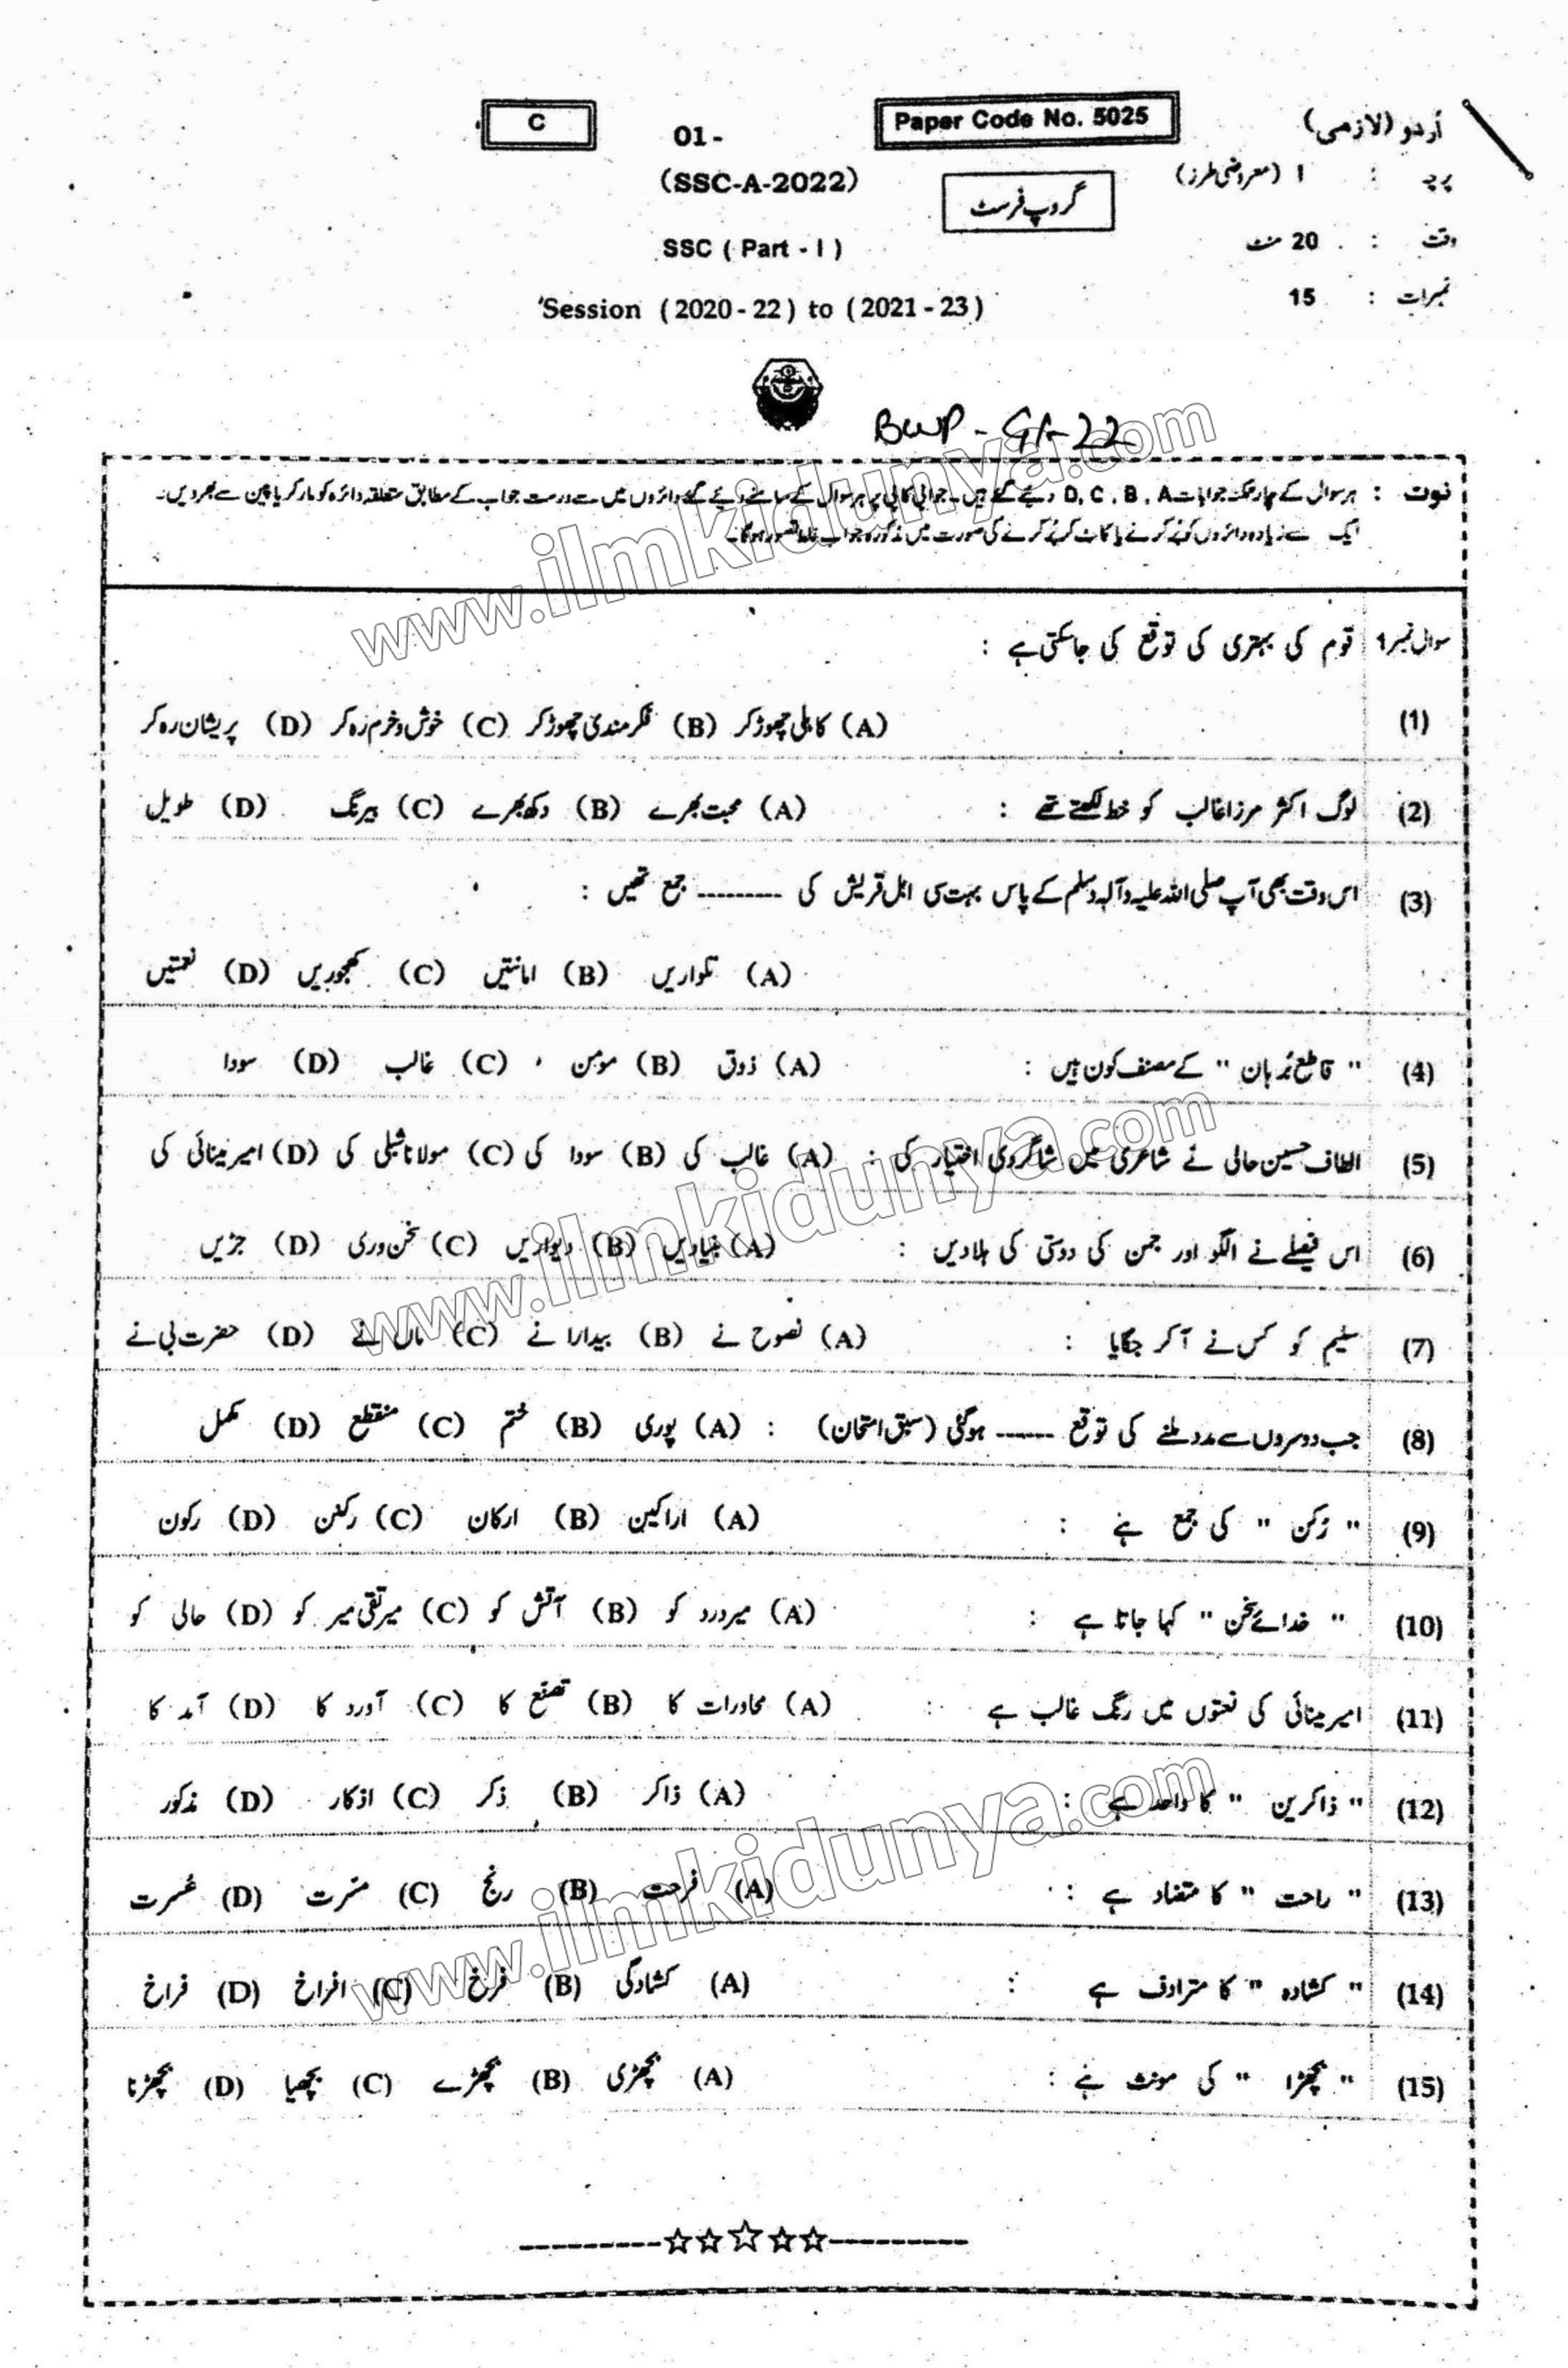 اُردو (لازمی)
Paper Code No. 5025
01-
C
پرچہ : I (معروضی طرز)
گروپ فرسٹ
(SSC-A-2022)
وقت : 20 منٹ
SSC ( Part - I )
نمبرات : 15
Session (2020-22) to (2021-23)
BWP-G1-22
نوٹ : ہر سوال کے چار ممکنہ جوابات D, C, B, A دیئے گئے ہیں۔ جوابی کاپی پر ہر سوال کے سامنے دیئے گئے دائروں میں سے درست جواب کے مطابق متعلقہ دائرہ کو مارکر یا پین سے بھر دیں۔
ایک سے زیادہ دائروں کو پُر کرنے یا کاٹ کر پُر کرنے کی صورت میں مذکورہ جواب غلط تصور ہوگا۔
سوال نمبر 1 قوم کی بہتری کی توقع کی جاسکتی ہے :
(1) (A) کاہلی چھوڑ کر (B) فکرمندی چھوڑ کر (C) خوش و خرم رہ کر (D) پریشان رہ کر
(2) لوگ اکثر مرزا غالب کو خط لکھتے تھے : (A) محبت بھرے (B) دکھ بھرے (C) بیرنگ (D) طویل
(3) اس وقت بھی آپ صلی اللہ علیہ وآلہٖ وسلم کے پاس بہت سی اہل قریش کی --------- جمع تھیں :
(A) تلواریں (B) امانتیں (C) کھجوریں (D) نعمتیں
(4) " قاطع بُرہان " کے مصنف کون ہیں : (A) ذوق (B) مومن (C) غالب (D) سودا
(5) الطاف حسین حالی نے شاعری میں شاگردی اختیار کی : (A) غالب کی (B) سودا کی (C) مولانا شبلی کی (D) امیر مینائی کی
(6) اس فیصلے نے الگو اور جمن کی دوستی کی ہلا دیں : (A) بنیادیں (B) دیواریں (C) سخن وری (D) جڑیں
(7) سلیم کو کس نے آ کر جگایا : (A) نصوح نے (B) بیدارا نے (C) ماں نے (D) حضرت بی نے
(8) جب دوسروں سے مدد ملنے کی توقع ------ ہوگئی (سبق امتحان) : (A) پوری (B) ختم (C) منقطع (D) مکمل
(9) " رُکن " کی جمع ہے : (A) اراکین (B) ارکان (C) رکنن (D) رکون
(10) " خدائے سخن " کہا جاتا ہے : (A) میر درد کو (B) آتش کو (C) میر تقی میر کو (D) حالی کو
(11) امیر مینائی کی نعتوں میں رنگ غالب ہے : (A) محاورات کا (B) تصنع کا (C) آورد کا (D) آمد کا
(12) " ذاکرین " کا واحد ہے : (A) ذاکر (B) ذکر (C) اذکار (D) مذکور
(13) " راحت " کا متضاد ہے : (A) فرحت (B) رنج (C) مسّرت (D) عُسرت
(14) " کشادہ " کا مترادف ہے : (A) کشادگی (B) فرخ (C) افراخ (D) فراخ
(15) " بچھڑا " کی مونث ہے : (A) بچھڑی (B) بچھڑے (C) بچھیا (D) بچھڑنا
www.ilmkidunya.com
www.ilmkidunya.com
www.ilmkidunya.com